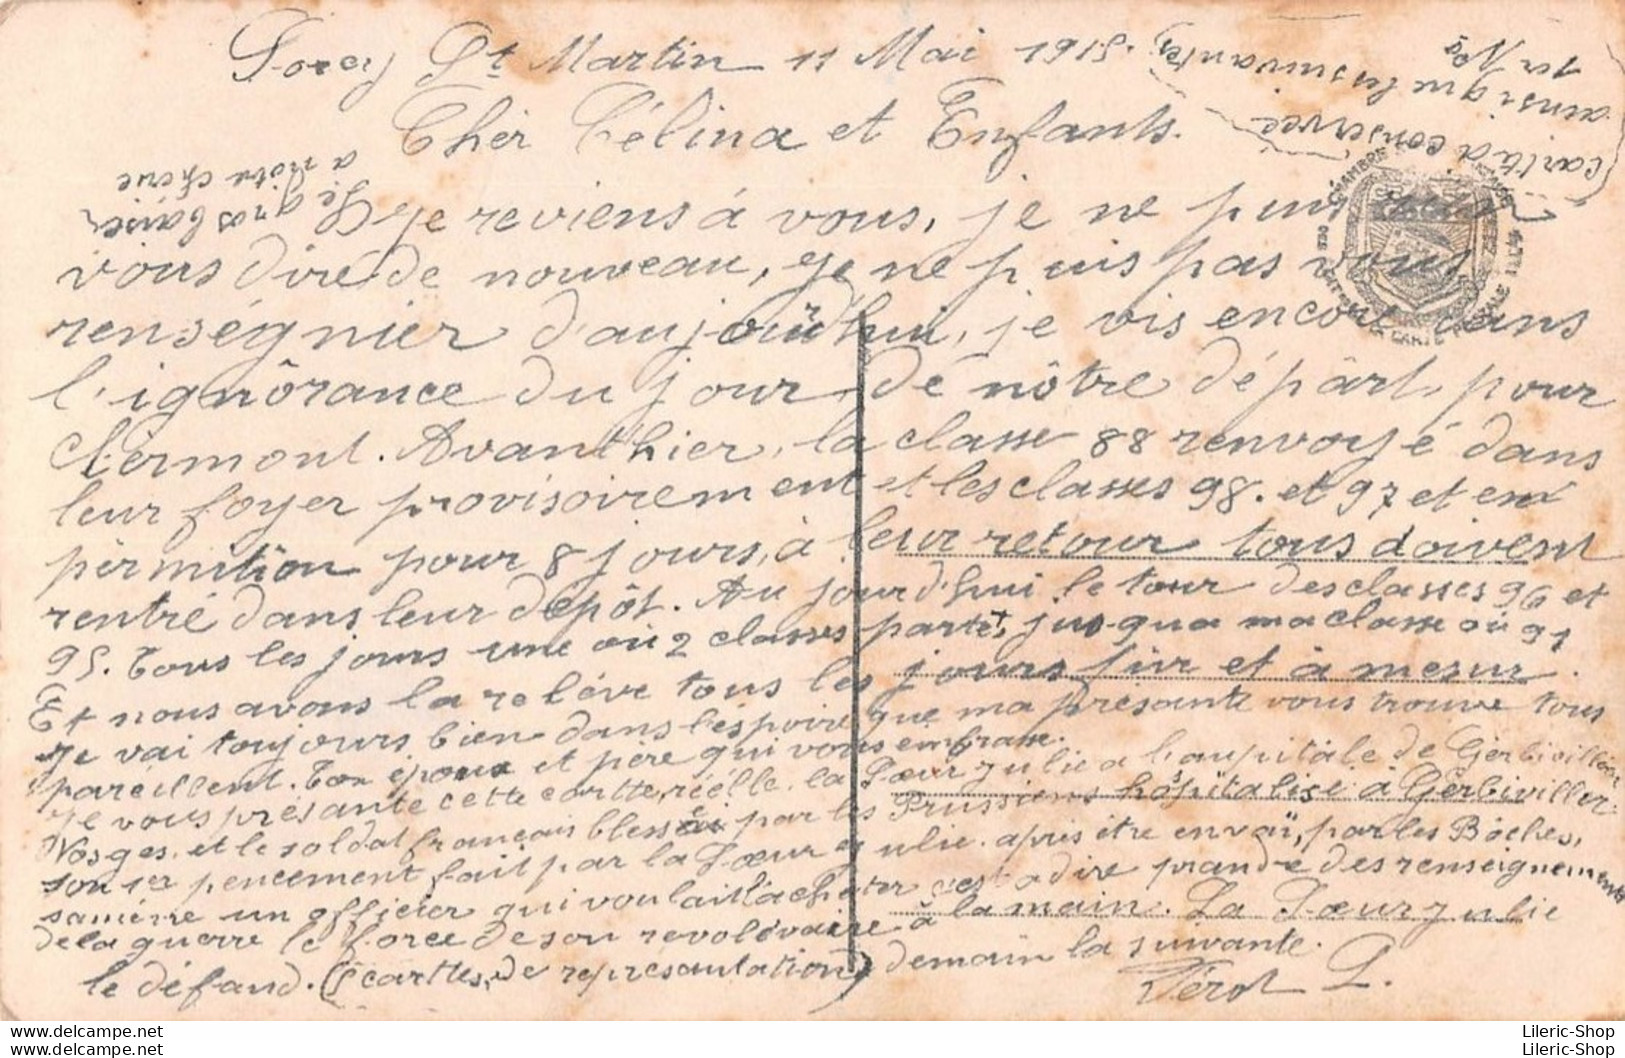 Sorcy St Martin 11 Mai 1915.
Cher Célina et Enfants.
1er No
ainsi que les suivantes,
carte a conservée
Le gros baiser
a notre cherie
Je reviens à vous, je ne puis
vous dire de nouveau, je ne puis pas vous
renségnier d'aujourd'hui, je vis encore dans
l'ignôrance du jour de nôtre dépârt, pour
Clermont. Avanthier, la classe 88 renvoyé dans
leur foyer provisoirement et les classes 98. et 97 et en
pèrmition pour 8 jours, à leur retour tous doivent
rentré dans leur depôt. Au jourd'hui le tour des classes 96 et
95. Tous les jours une où 2 classes parte, jus-qua ma classe où 91
Et nous avons la reléve tous les jours fur et à mesur.
Je vai toujours bien dans l'éspoire que ma présante vous trouve tous
paréillent. Ton époux et père qui vous embrasse.
Je vous présante cette cartte, réélle, la Sœur Julie a l'aupitale de Gerbiviller
Vosges, et le soldat français blessé par les Prussiens hospitalisé à Gerbiviller.
son 1er pencement fait par la Sœur Julie. après être envaï, par les Boches,
saméne un officier qui voulait l'acheter c'est a dire prandre des renseignements
de la guerre le force de son revolévaire à la main. La Sœur Julie
le défand. (5 carttes, de représantation) demain la suivante.
Férot L.
CHAMBRE SYNDICALE FRANÇAISE DES FABRICANTS DE LA CARTE POSTALE
Lileric-Shop
Lileric-Shop
https://www.delcampe.net
https://www.delcampe.net